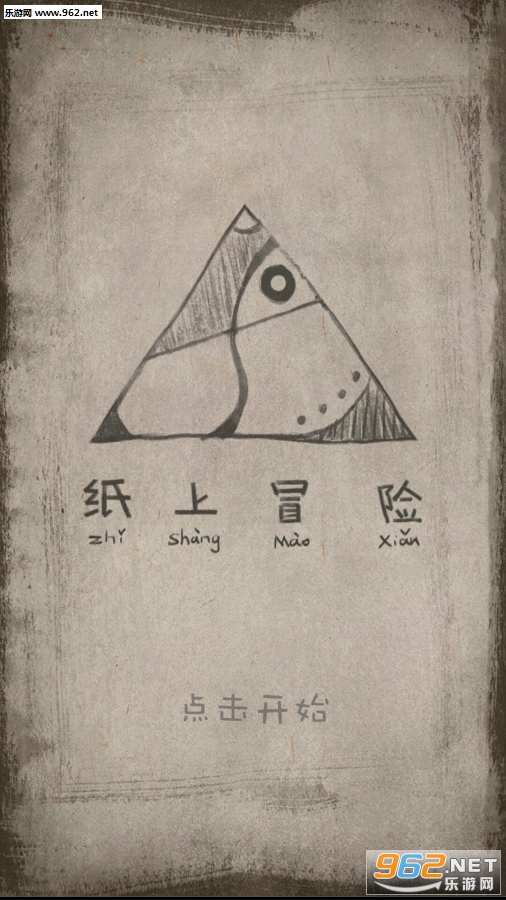 乐游网 www.962.net
纸上冒险
zhǐ shàng Mào xiǎn
点击开始
962.NET
乐游网